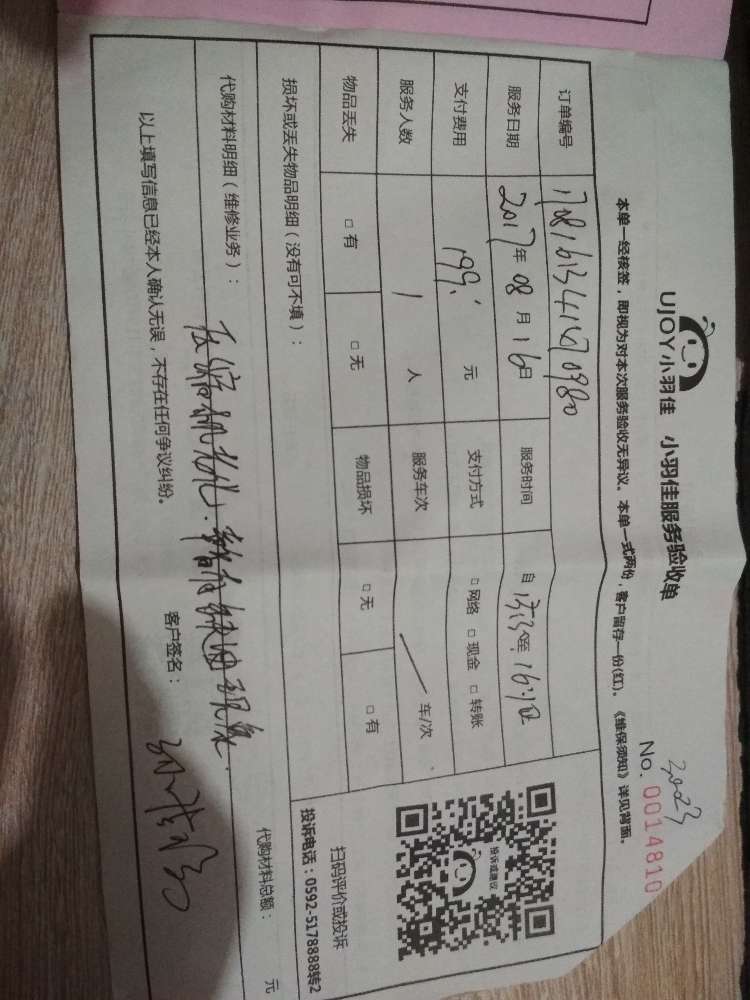 UJOY小羽佳 小羽佳服务验收单
No. 0014810
本单一经核签，即视为对本次服务验收无异议。本单一式两份，客户留存一份(红)。《维保须知》详见背面。
订单编号
服务日期 2017年08月16日 服务时间 自 至
支付费用 199. 元 支付方式 □网络 □现金 □转账
服务人数 1 人 服务车次 车/次
物品丢失 □有 □无 物品损坏 □无 □有
投诉或建议
扫码评价或投诉
投诉电话：0592-5178888转2
损坏或丢失物品明细（没有可不填）：
代购材料明细（维修业务）：
代购材料总额： 元
以上填写信息已经本人确认无误，不存在任何争议纠纷。 客户签名：